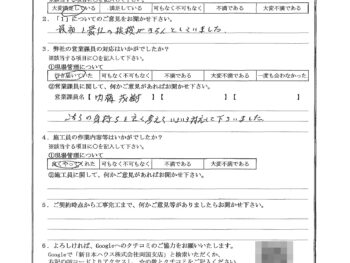 大変満足している　満足している　可もなく不可もなく　不満である　大変不満である
2．「1」についてのご意見をお聞かせ下さい。
3．弊社の営業課員の対応はいかがでしたか？
※該当する項目に○を記入して下さい。
①現場管理について
行き届いていた　可もなく不可もなく　不満である　大変不満である　一度も会わなかった
②営業課員に関して、何かご意見があればお聞かせ下さい。
営業課員名【 内藤茂樹 】【 】【 】
こちらの気持ちも
4．施工員の作業内容等はいかがでしたか？
※該当する項目に○を記入して下さい。
①現場管理について
良くやってくれた　可もなく不可もなく　不満である　大変不満である
②施工員に関して、何かご意見があればお聞かせ下さい。
5．ご契約時点から工事完工まで、何かご意見等がありましたらお聞かせ下さい。
6．よろしければ、Googleへのクチコミのご協力をお願いいたします。
Googleで「新日本ハウス株式会社両国支店」と検索いただくか、
右記のQRコードよりアクセスし、☆の数とクチコミをご記入ください